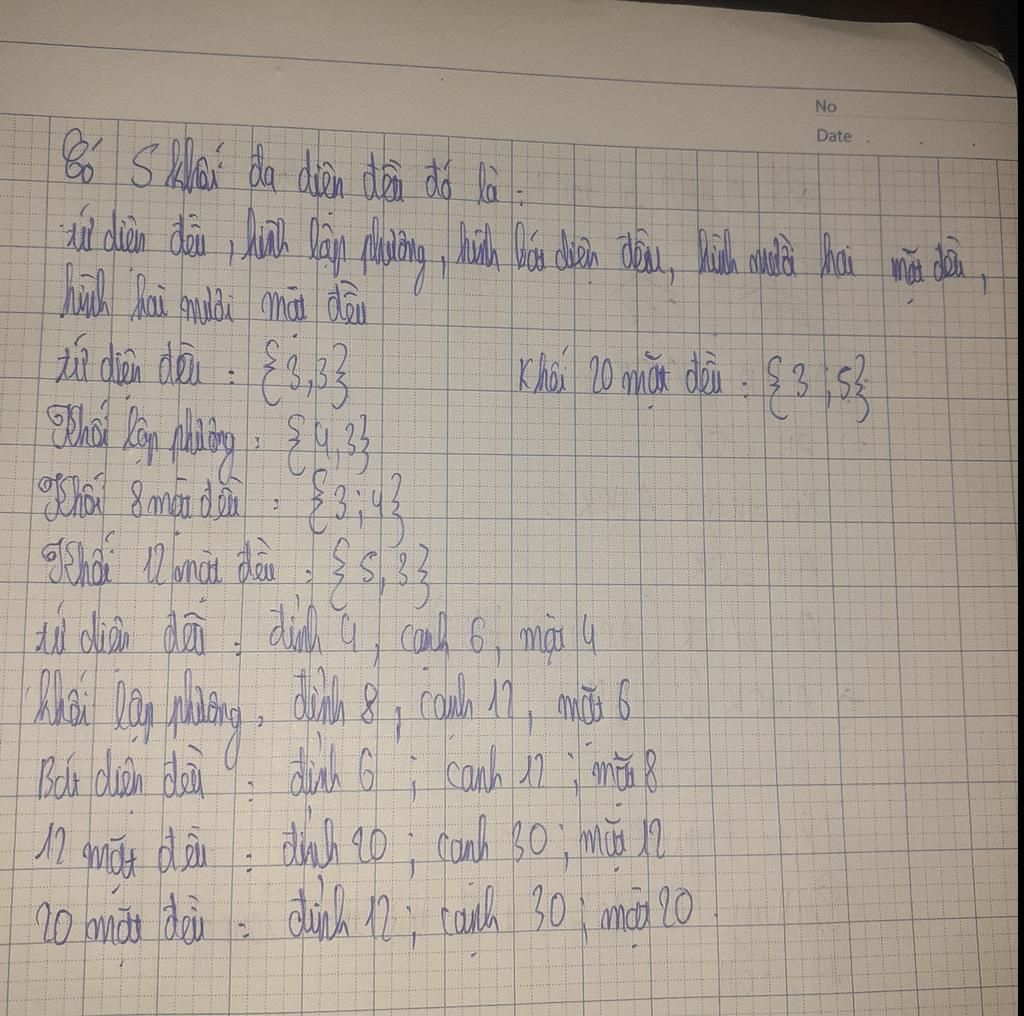 No
Date
Có 5 khối đa diện đều đó là:
tứ diện đều, hình lập phương, hình bát diện đều, hình mười hai mặt đều,
hình hai mươi mặt đều
tứ diện đều: {3,3}
Khối 20 mặt đều: {3;5}
Khối lập phương: {4,3}
Khối 8 mặt đều: {3;4}
Khối 12 mặt đều: {5,3}
tứ diện đều: đỉnh 4, cạnh 6, mặt 4
khối lập phương: đỉnh 8, cạnh 12, mặt 6
Bát diện đều: đỉnh 6; cạnh 12; mặt 8
12 mặt đều: đỉnh 20; cạnh 30; mặt 12
20 mặt đều: đỉnh 12; cạnh 30; mặt 20